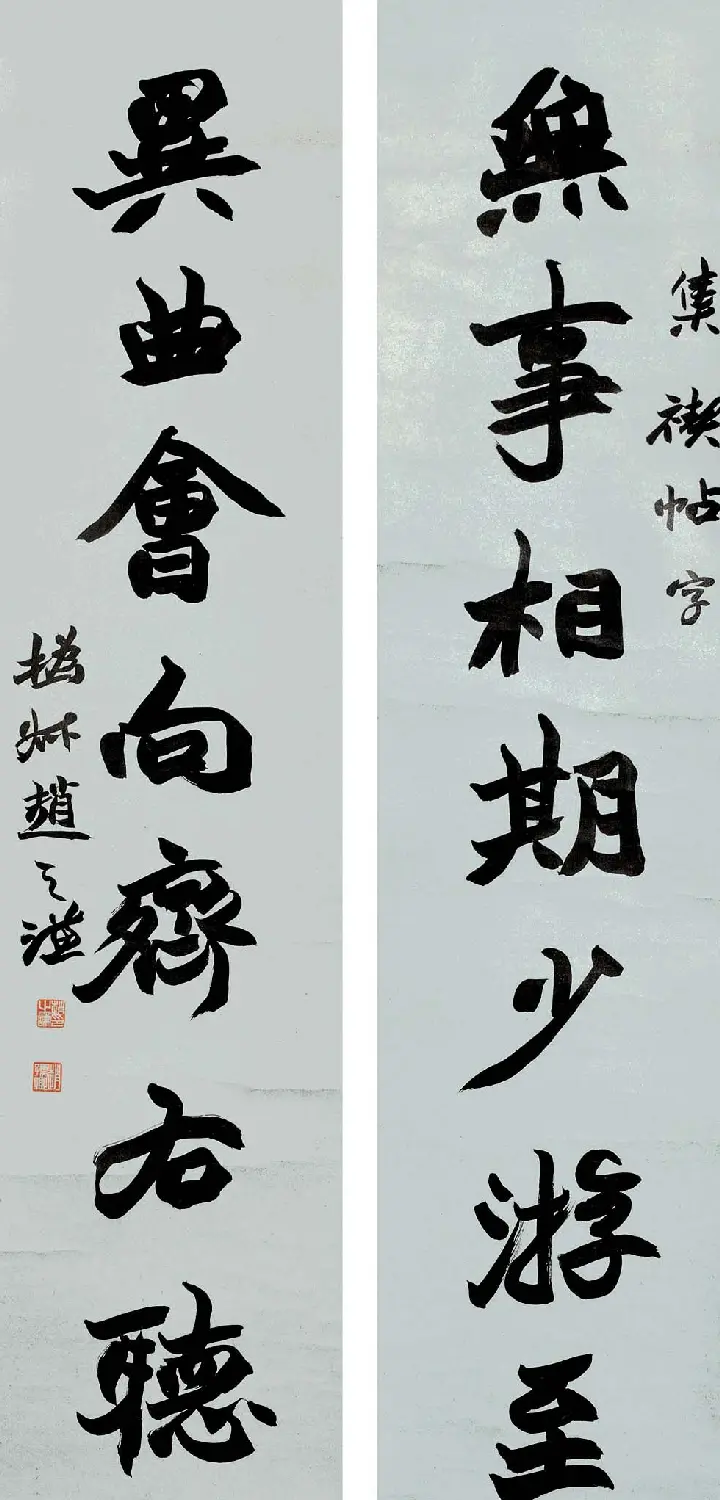 集禊帖字
無事相期少游至
異曲會向齊右聽
撝叔趙之謙